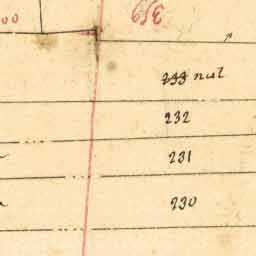 00
319
233 nul
232
231
230